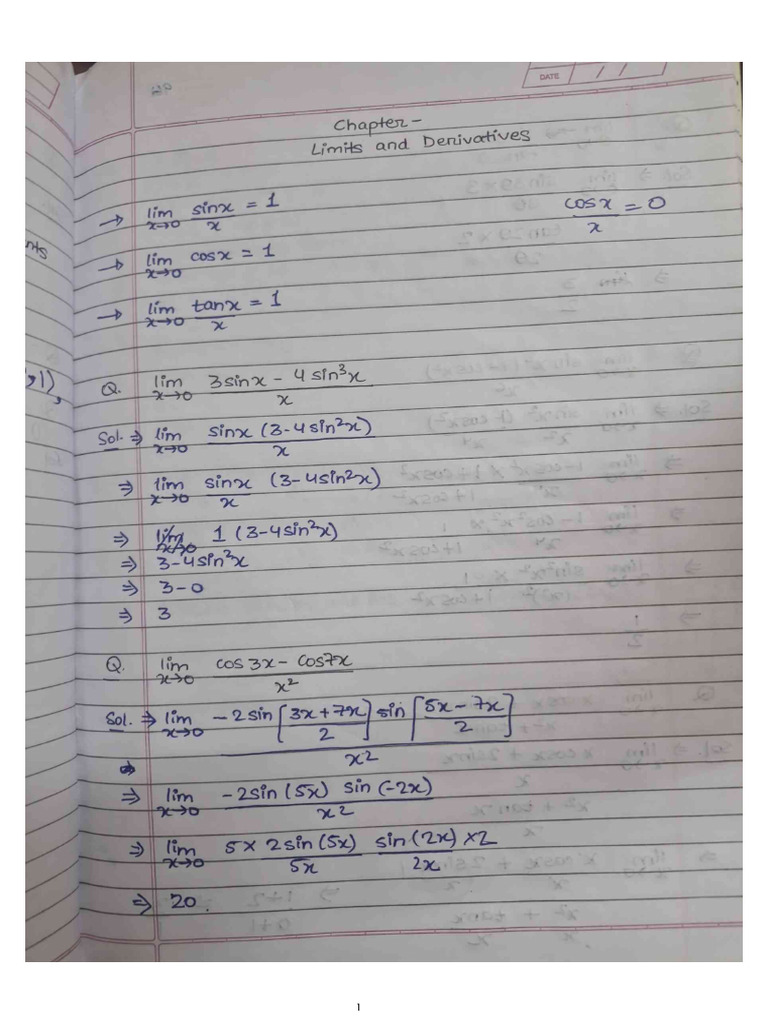 DATE
Chapter-
Limits and Derivatives
→ lim x→0 sinx/x = 1
cosx/x = 0
→ lim x→0 cosx = 1
→ lim x→0 tanx/x = 1
Q. lim x→0 (3sinx - 4sin³x)/x
Sol. ⇒ lim x→0 sinx (3-4sin²x)/x
⇒ lim x→0 sinx/x (3-4sin²x)
⇒ lim x→0 1 (3-4sin²x)
⇒ 3-4sin²x
⇒ 3-0
⇒ 3
Q. lim x→0 (cos3x - cos7x)/x²
Sol. ⇒ lim x→0 -2sin[(3x+7x)/2] sin[(5x-7x)/2] / x²
⇒ lim x→0 -2sin(5x) sin(-2x) / x²
⇒ lim x→0 5 × 2sin(5x)/5x sin(2x)×2/2x
⇒ 20.
1